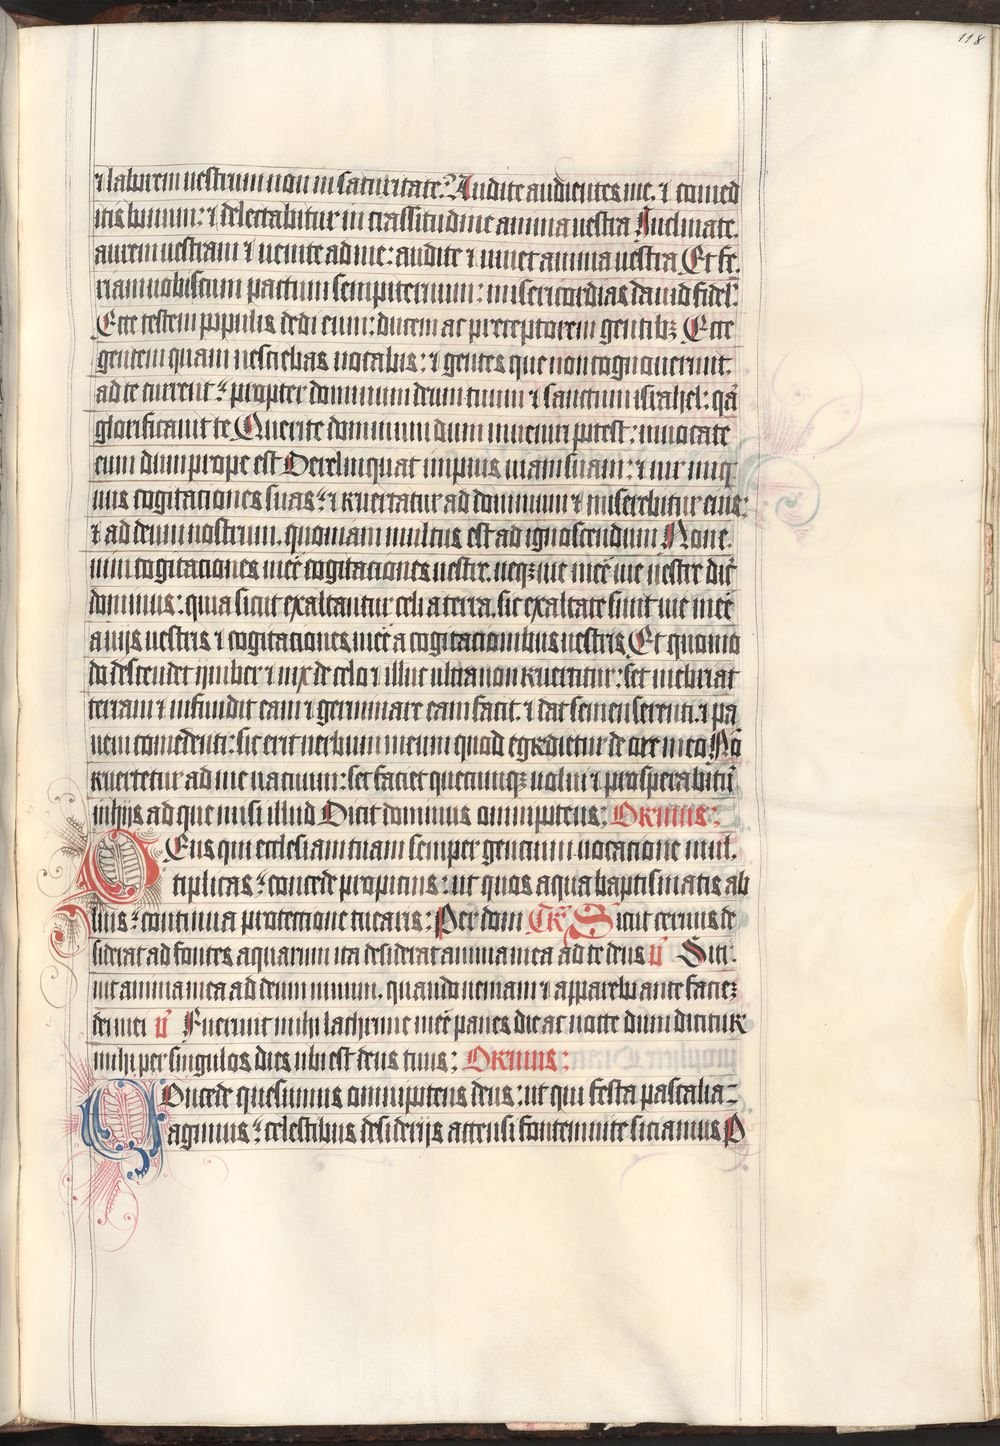 118
⁊ laborem uestrum non in saturitate? Audite audientes me. ⁊ comed
itis bonum: ⁊ delectabitur in crassitudine anima uestra Inclinate.
aurem uestram ⁊ uenite ad me: audite ⁊ uiuet anima uestra Et fe.
riam uobiscum pactum sempiternum: misericordias dauid fidel.
Ecce testem populis dedi eum: ducem ac preceptorem gentibꝫ Ecce
gentem quam nesciebas uocabis: ⁊ gentes que non cognouerunt.
ad te current: propter dominum deum tuum ⁊ sanctum israhel: qā
glorificauit te Querite dominum dum inueniri potest: inuocate
eum dum prope est Derelinquat impius uiam suam: ⁊ uir iniq
uus cogitaciones suas: ⁊ reuertatur ad dominum ⁊ miserebitur eius:
⁊ ad deum nostrum. quoniam multus est ad ignoscendum Non e.
nim cogitaciones mee cogitaciones uestre. neqꝫ uie mee uie uestre dic̄
dominus: quia sicut exaltantur celi a terra. sic exaltate sunt uie mee
a uijs uestris ⁊ cogitaciones mee a cogitacionibus uestris Et quomo
do descendet ijmber ⁊ nix de celo ⁊ illuc ultra non reuertitur: set inebriat
terram ⁊ infundit eam ⁊ germinare eam facit. ⁊ dat semen serenti. ⁊ pa
nem comedenti: sic erit uerbum meum quod egredietur de ore meo Nō
reuertetur ad me uacuum: set faciet quecumqꝫ uolui ⁊ prosperabitū
in hijs ad que misi illud Dicit dominus omnipotens: Oremus:
DEus qui ecclesiam tuam semper gencium uocacione mul.
tiplicas: concede propicius: ut quos aqua baptismatis ab
luis: continua protectione tuearis: Per dom Sicut ceruus de
siderat ad fontes aquarum ita desiderat anima mea ad te deus v̄ Siti.
uit anima mea ad deum uiuum. quando ueniam ⁊ apparebo ante faciē
dei mei v̄ Fuerunt michi lachrime mee panes die ac nocte dum dicitur
michi per singulos dies ubi est deus tuus: Oremus:
COncede quesumus omnipotens deus: ut qui festa pascalia
agimus: celestibus desiderijs accensi fontem uite siciamus P